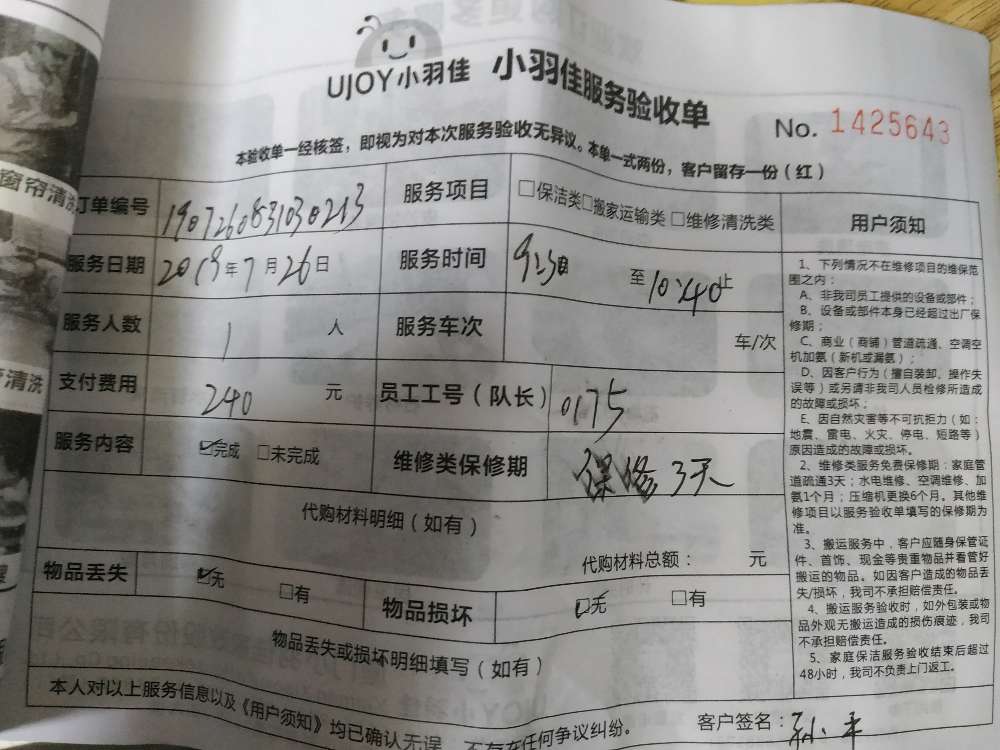 UJOY小羽佳 小羽佳服务验收单
No. 1425643
本验收单一经核签，即视为对本次服务验收无异议。本单一式两份，客户留存一份（红）
窗帘清洗
订单编号 1907260831030213 服务项目 □保洁类□搬家运输类 □维修清洗类
服务日期 2019年7月26日 服务时间 9:30 至 10:40止
服务人数 1 人 服务车次 车/次
清洗
支付费用 240 元 员工工号（队长） 0175
服务内容 ☑完成 □未完成 维修类保修期 保修3天
代购材料明细（如有）
代购材料总额： 元
物品丢失 ☑无 □有 物品损坏 ☑无 □有
物品丢失或损坏明细填写（如有）
本人对以上服务信息以及《用户须知》均已确认无误，不存在任何争议纠纷。
客户签名：孙
用户须知
1、下列情况不在维修项目的维保范
围之内：
A、非我司员工提供的设备或部件；
B、设备或部件本身已经超过出厂保
修期；
C、商业（商铺）管道疏通、空调空
机加氨（新机或漏氨）；
D、因客户行为（擅自装卸，操作失
误等）或另请非我司人员检修所造成
的故障或损坏；
E、因自然灾害等不可抗拒力（如：
地震、雷电、火灾、停电、短路等）
原因造成的故障或损坏。
2、维修类服务免费保修期：家庭管
道疏通3天；水电维修、空调维修、加
氨1个月；压缩机更换6个月。其他维
修项目以服务验收单填写的保修期为
准。
3、搬运服务中，客户应随身保管证
件、首饰、现金等贵重物品并看管好
搬运的物品。如因客户造成的物品丢
失/损坏，我司不承担赔偿责任。
4、搬运服务验收时，如外包装或物
品外观无搬运造成的损伤痕迹，我司
不承担赔偿责任。
5、家庭保洁服务验收结束后超过
48小时，我司不负责上门返工。